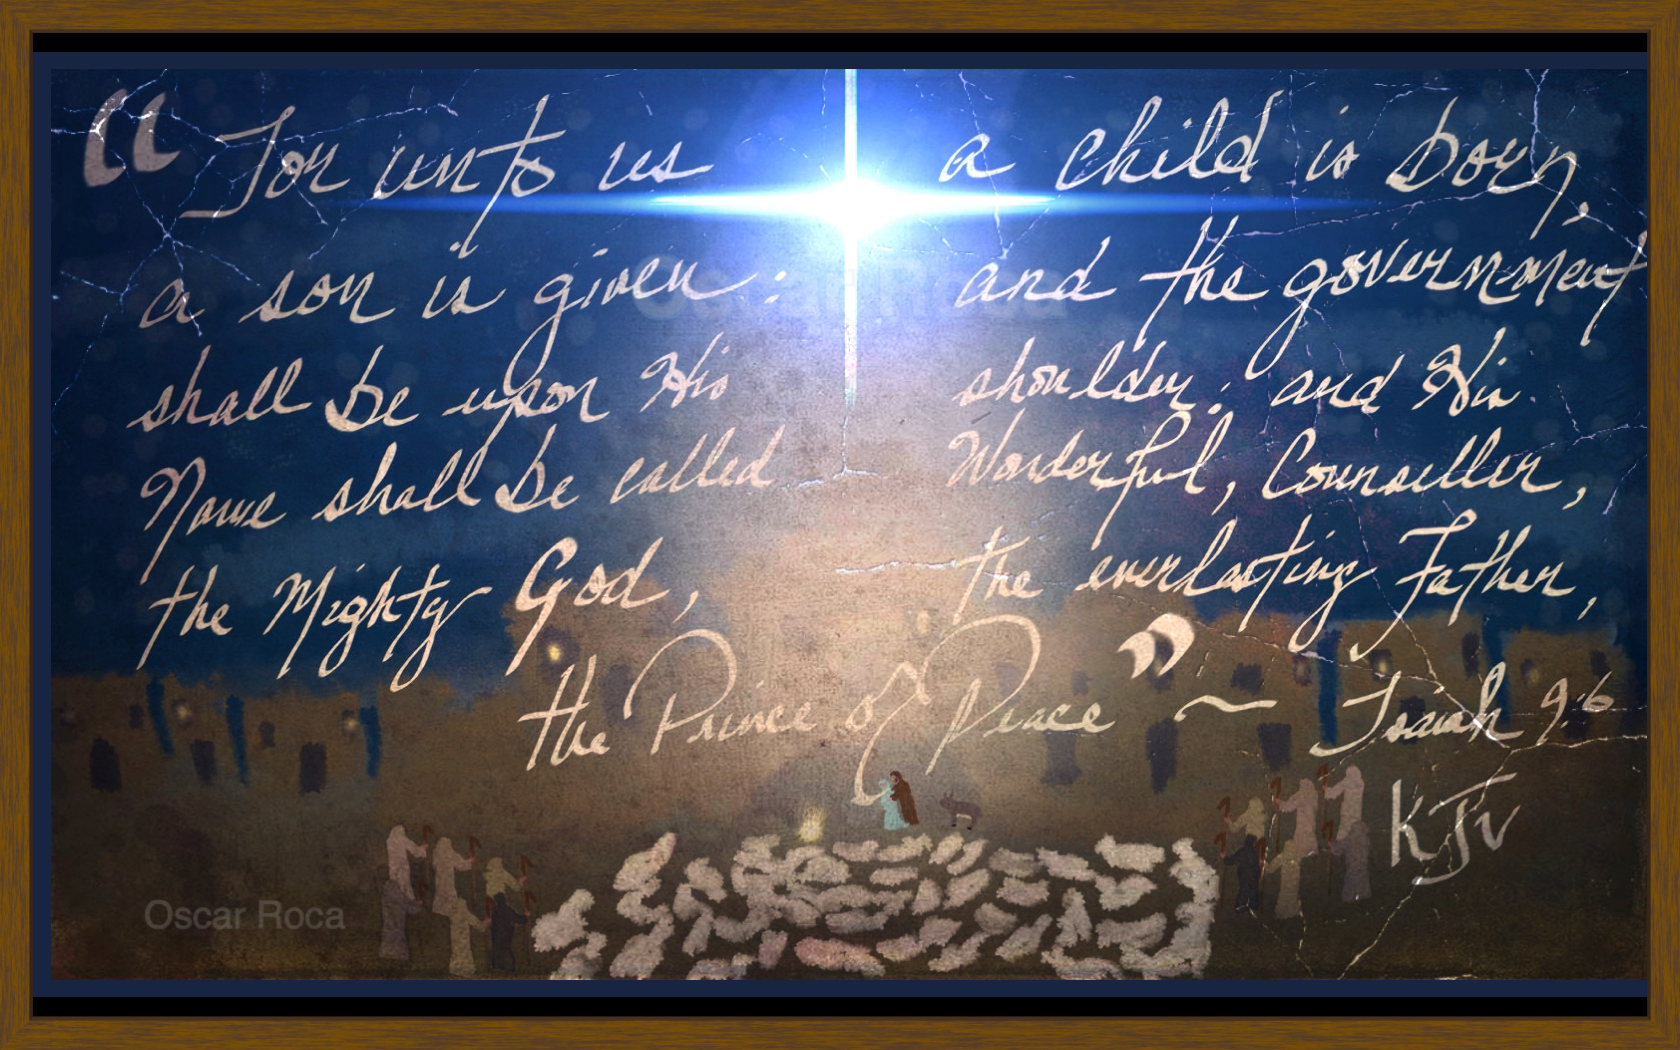 “For unto us a child is born,
a son is given: and the government
shall be upon His shoulder: and His
Name shall be called Wonderful, Counseller,
the Mighty God, the everlasting Father,
the Prince of Peace” ~ Isaiah 9:6
KJV
Oscar Roca
Oscar Roca